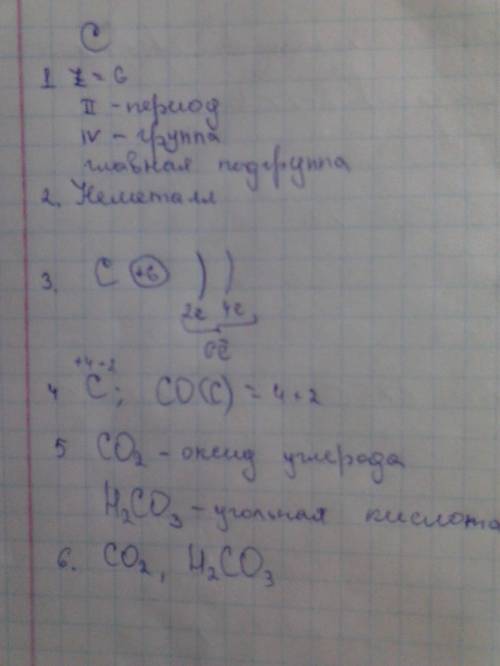 C
1 Z = 6
II - период
IV - группа
главная подгруппа
2. Неметалл
3. C +6 ) )
2ē 4ē
6ē
+4 -2
4 C; CO(C) = 4 · 2
5 CO₂ - оксид углерода
H₂CO₃ - угольная кислота
6. CO₂, H₂CO₃